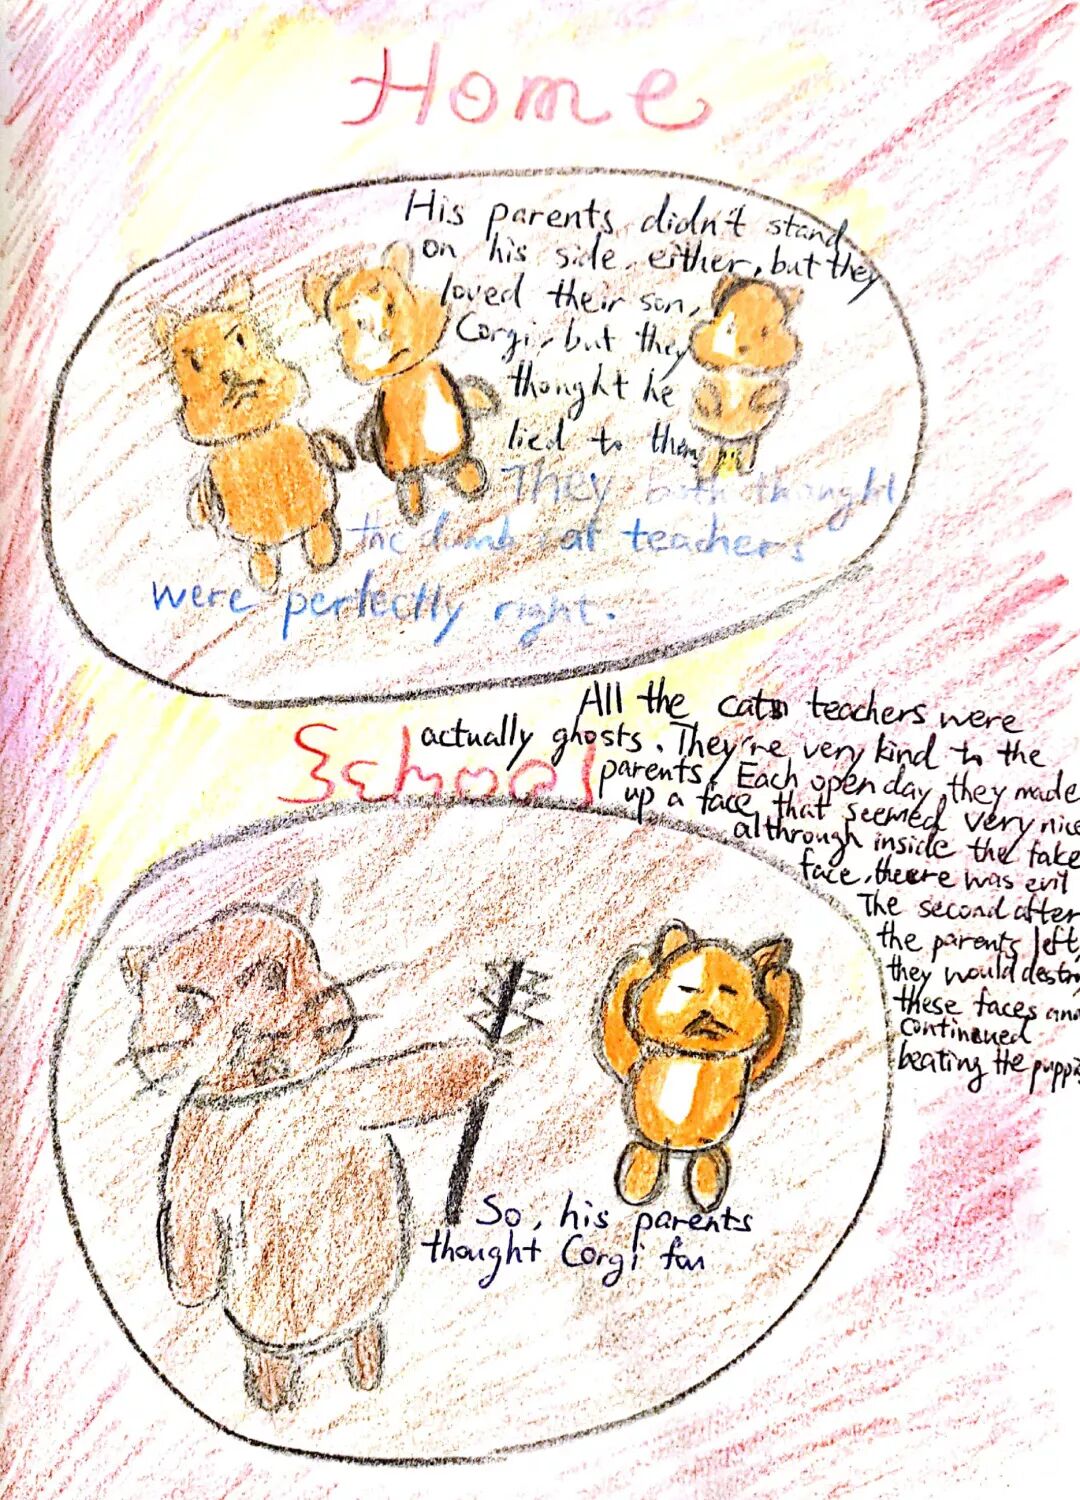 Home
His parents didn't stand
on his side either, but they
loved their son,
Corgi, but they
thought he
lied to them
They both thought
the dumb cat teachers
were perfectly right.
All the cats teachers were
actually ghosts. They're very kind to the
School
parents. Each open day, they made
up a face that seemed very nice
althrough inside the fake
face, there was evil
The second after
the parents left,
they would destro
these faces and
continued
beating the puppi
So, his parents
thought Corgi